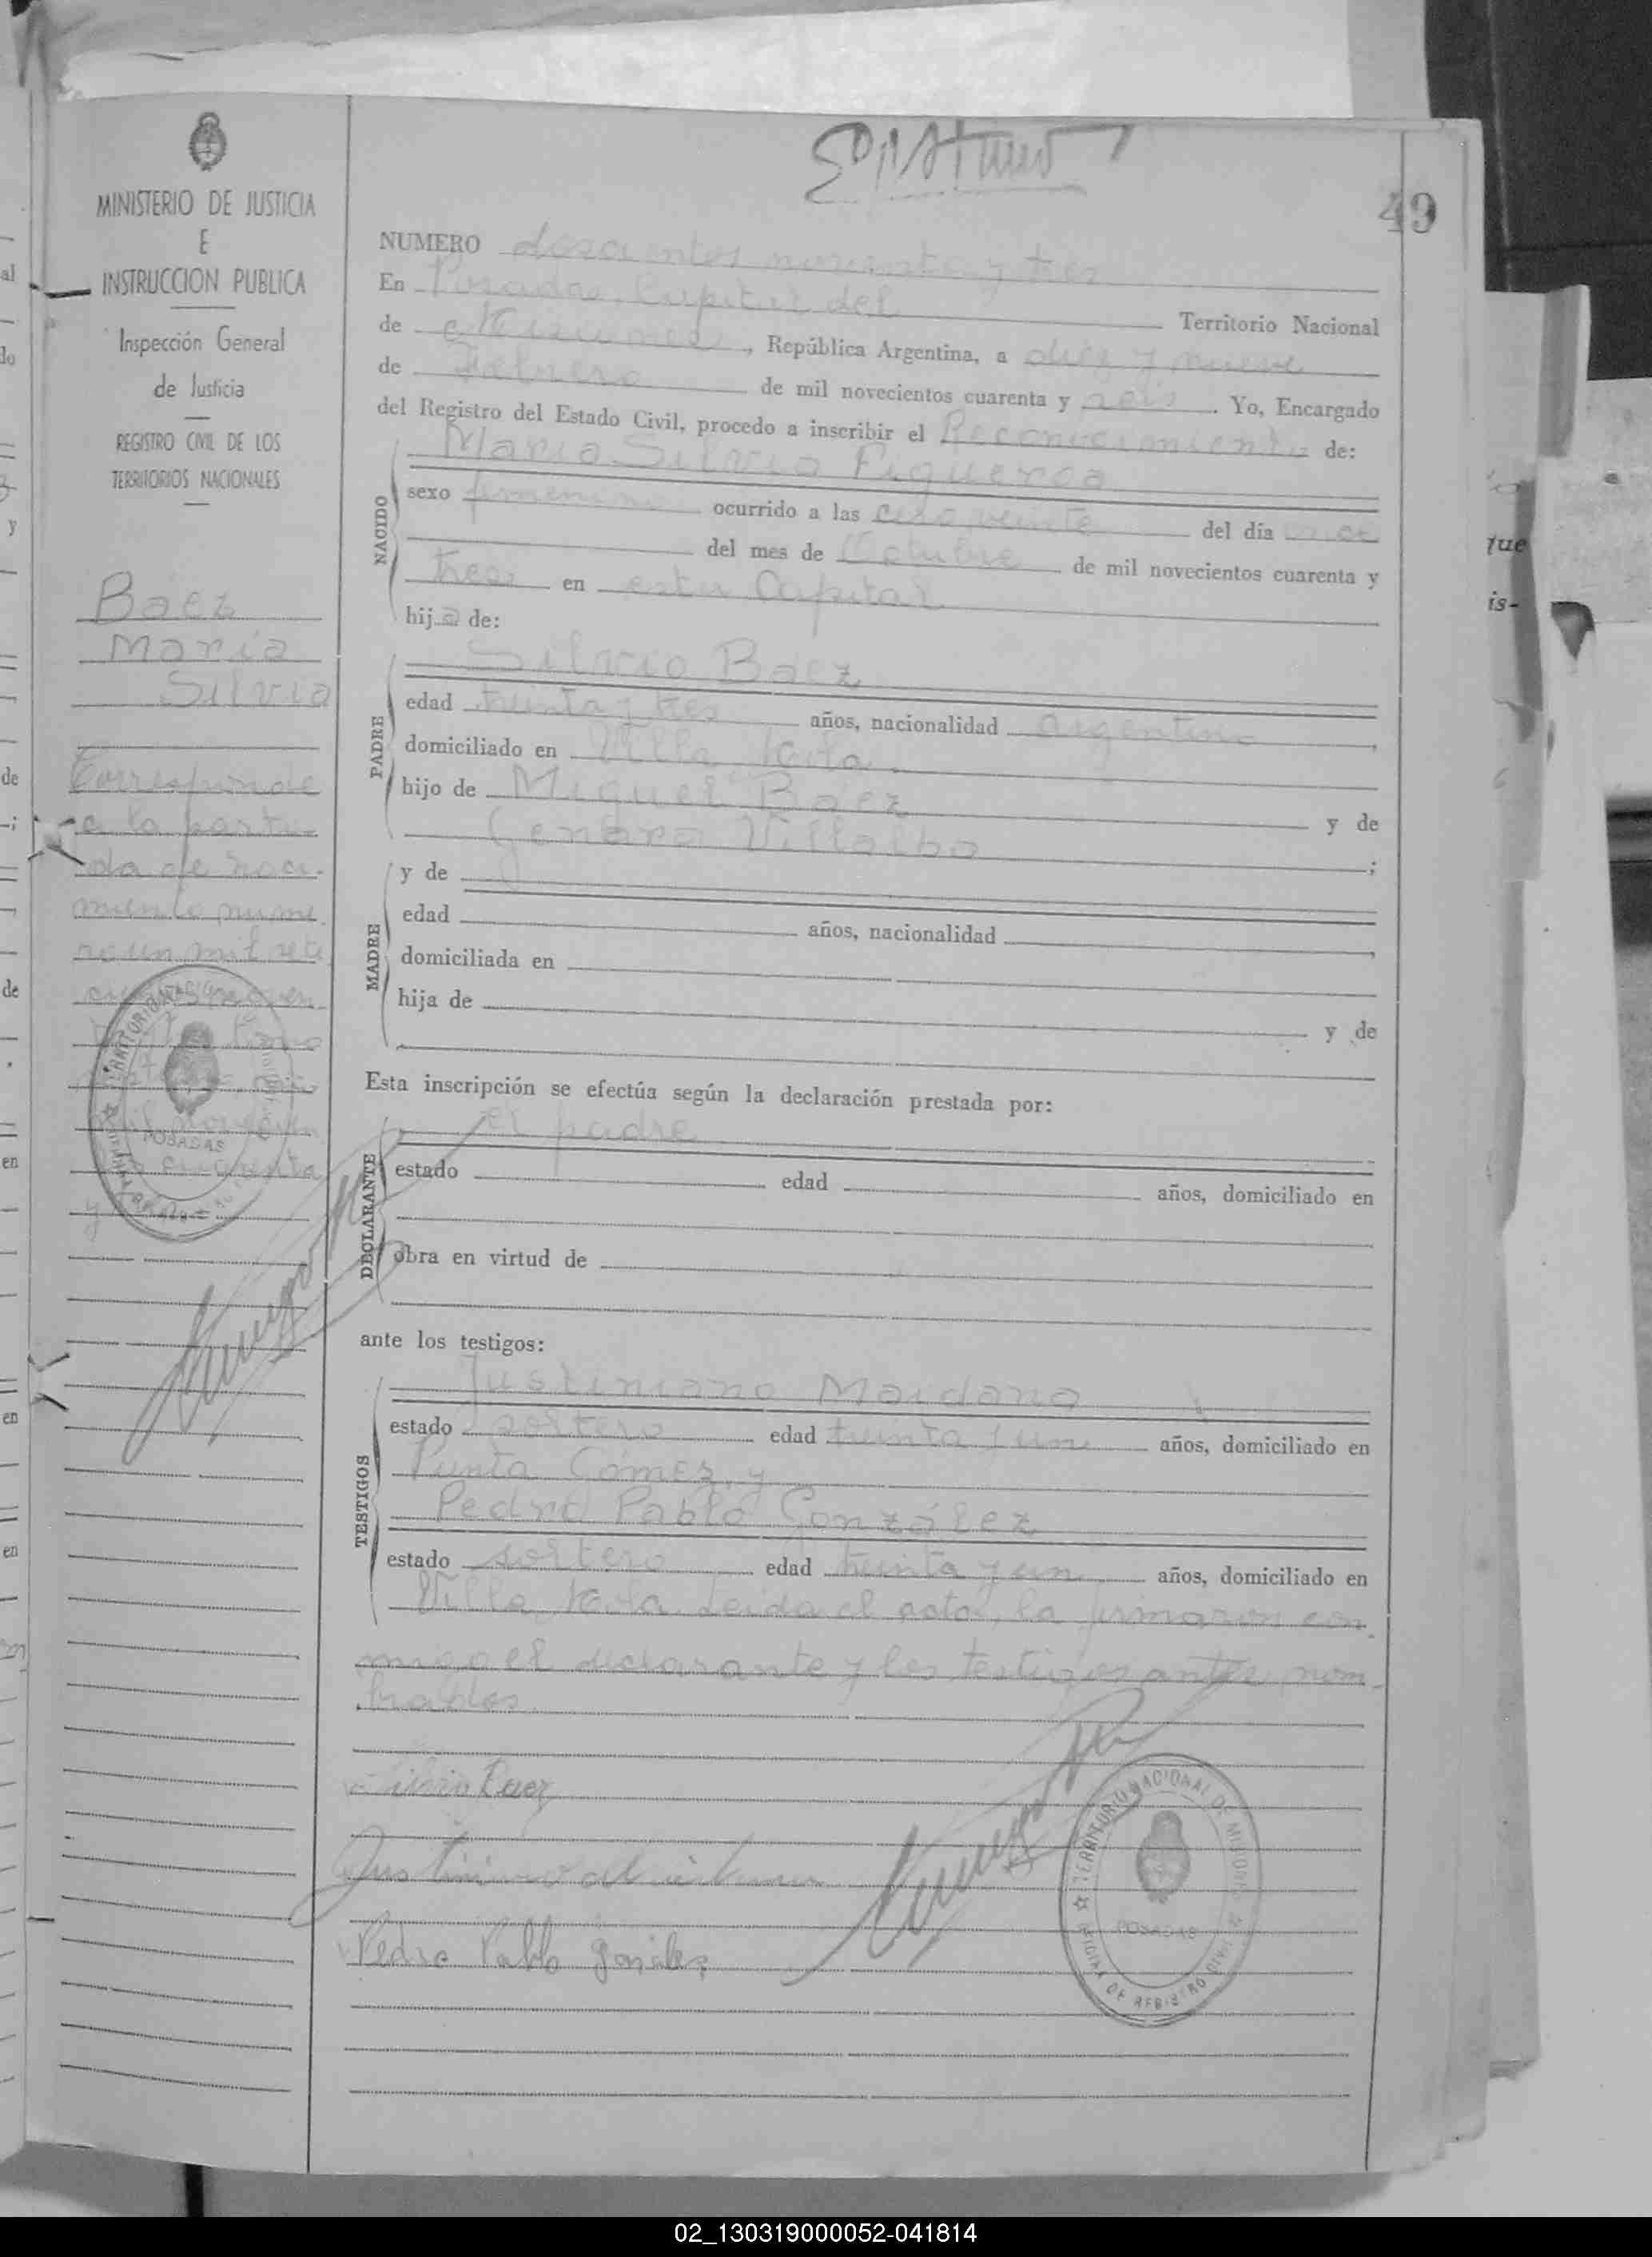 49
MINISTERIO DE JUSTICIA
E
INSTRUCCION PUBLICA
Inspección General
de Justicia
REGISTRO CIVIL DE LOS
TERRITORIOS NACIONALES
Baez
Maria
Silvia
Corresponde
a la parti-
da de naci-
miento nume-
ro un mil
y
NUMERO doscientos noventa y tres
En Posadas, Capital del Territorio Nacional
de Misiones, República Argentina, a diez y nueve
de Febrero de mil novecientos cuarenta y seis. Yo, Encargado
del Registro del Estado Civil, procedo a inscribir el Reconocimiento de:
NACIDO
Maria Silvia Figueroa
sexo femenino ocurrido a las cero veinte del día once
del mes de Octubre de mil novecientos cuarenta y
tres en esta Capital
hija de:
PADRE
Silvio Baez
edad treinta y tres años, nacionalidad argentino,
domiciliado en Villa
hijo de Miguel Baez y de
Genara Villalba;
MADRE
y de
edad años, nacionalidad
domiciliada en
hija de y de
Esta inscripción se efectúa según la declaración prestada por:
DECLARANTE
el padre
estado edad años, domiciliado en
obra en virtud de
ante los testigos:
TESTIGOS
Justiniano Maidana
estado soltero edad treinta y un años, domiciliado en
Punta Gómez, y
Pedro Pablo González
estado soltero edad treinta y un años, domiciliado en
Villa Leida el acta, la firmaron con-
migo el declarante y los testigos antes nom-
brados.
Silvio Baez
Justiniano
Pedro Pablo González
TERRITORIO NACIONAL DE MISIONES
POSADAS
OFICINA DE REGISTRO CIVIL
02_130319000052-041814